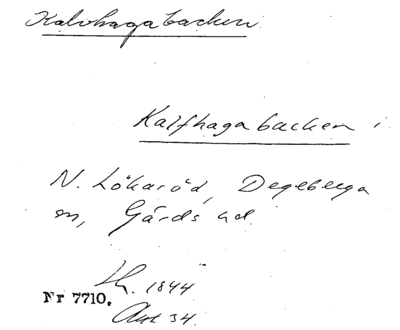 Kalvhagabacken
Kalfhagabacken i
N. Lökaröd, Degeberga
sn, Gärds hd
Lh. 1844
Nr 7710.
Akt 34.